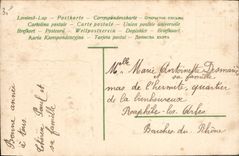 Levelező-Lap Postkarte Correspondenzkarte
Cartolina postale Carte postale Union postale
Brefkort Postcard Weltpostverein Dopisnice Briefkaart
Karta Korespondencyjna Tarjeta postal
Mlle Marie Antoinette
et sa famille
mas de l'hermite, quartier
de la
Raphèle les Arles
Bouches du Rhône
Bonne année
à tous
Paul et
sa famille